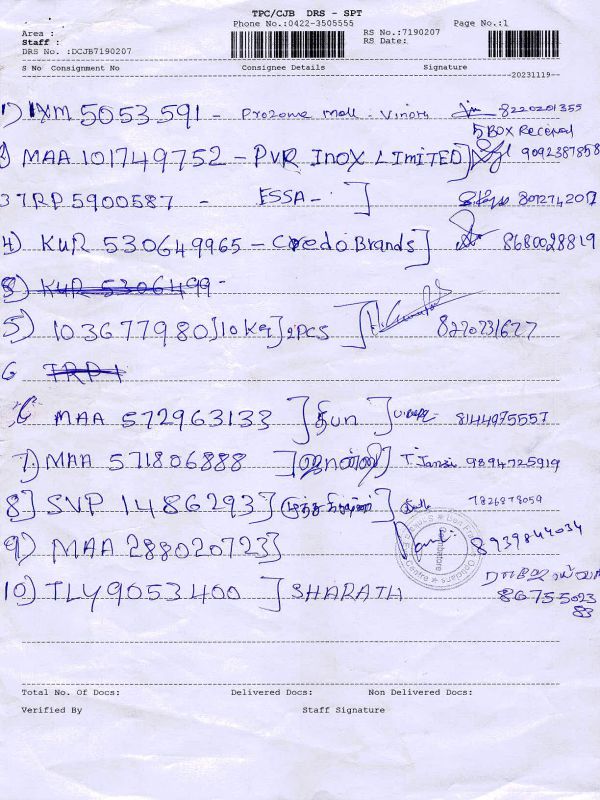 TPC/CJB DRS - SPT
Phone No.:0422-3505555 Page No.:1
Area :
Staff :
DRS No. :DCJB7190207
RS No.:7190207
RS Date:
S No Consignment No Consignee Details Signature
20231119
1) IXM 5053591 - Prozone Mall - Vinoth 8220201355
5 BOX Received
2) MAA 101749752 - PVR INOX LIMITED] 9092387858
3 TRP 5900587 - ESSA - ]
4) KUR 530649965 - Credo Brands] 8680028819
5) 103677980] 10 Kg] 2PCS ] 8220231627
6
6 MAA 572963133 ] தீபா ] 8144975557
7) MAA 571806888 ] ஜான்ஸி] T. Jansi 9894725919
8] SVP 1486293] ] 7826878059
9) MAA 288020723] 8939844034
10) TLY 9053400 ] SHARATH
86755023
83
Total No. Of Docs: Delivered Docs: Non Delivered Docs:
Verified By Staff Signature